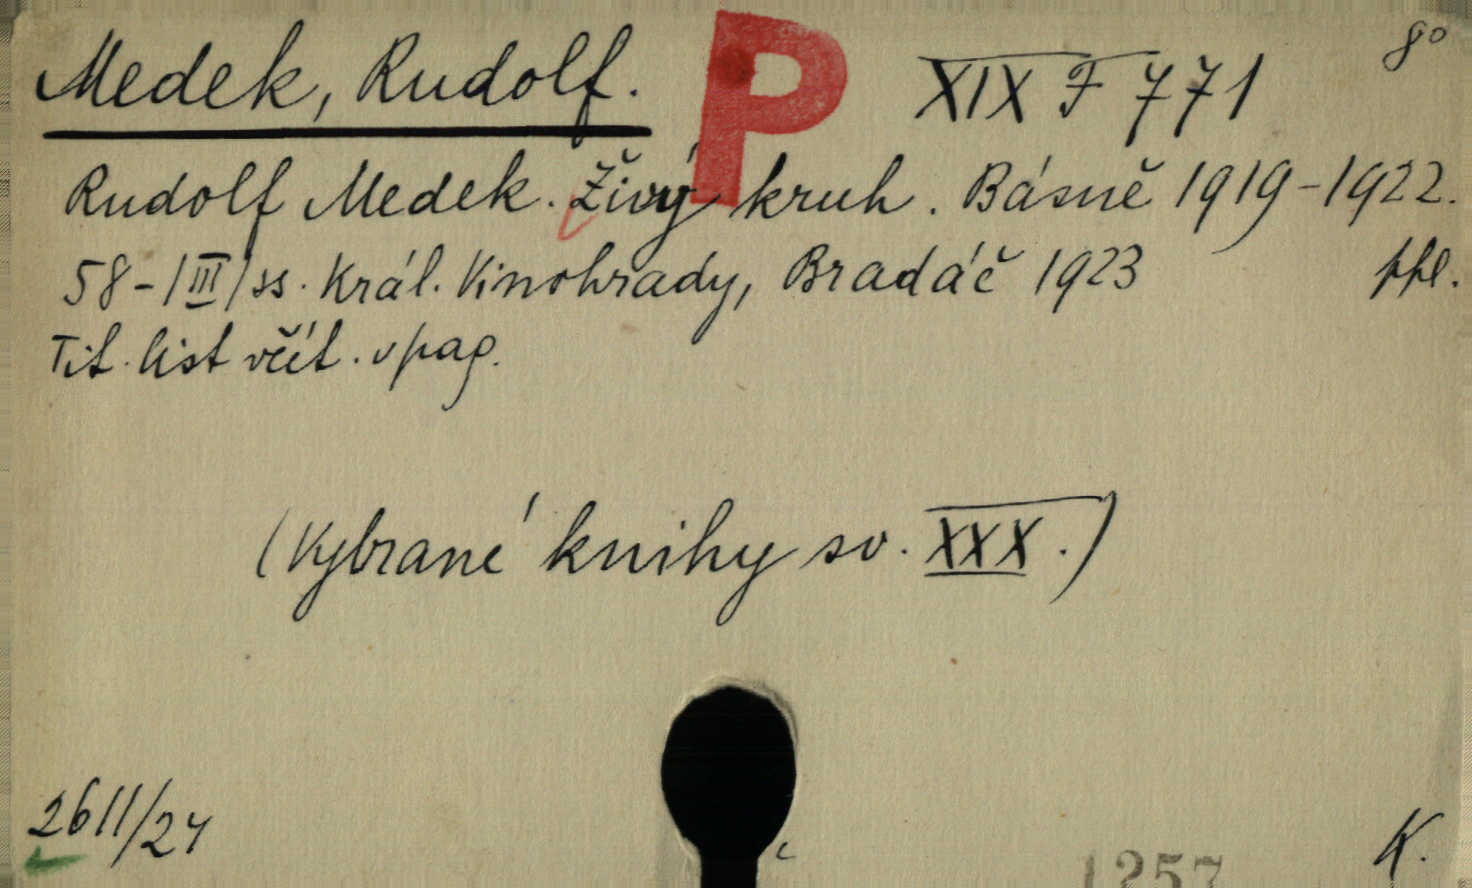 Medek, Rudolf. P XIX F 771 8°
Rudolf Medek. Živý kruh. Básně 1919-1922.
58-/III/ss. Král. Vinohrady, Bradáč 1923 ppl.
Tit. list včít. v pag.
(Vybrané knihy sv. XXX.)
2611/24 K.
1257